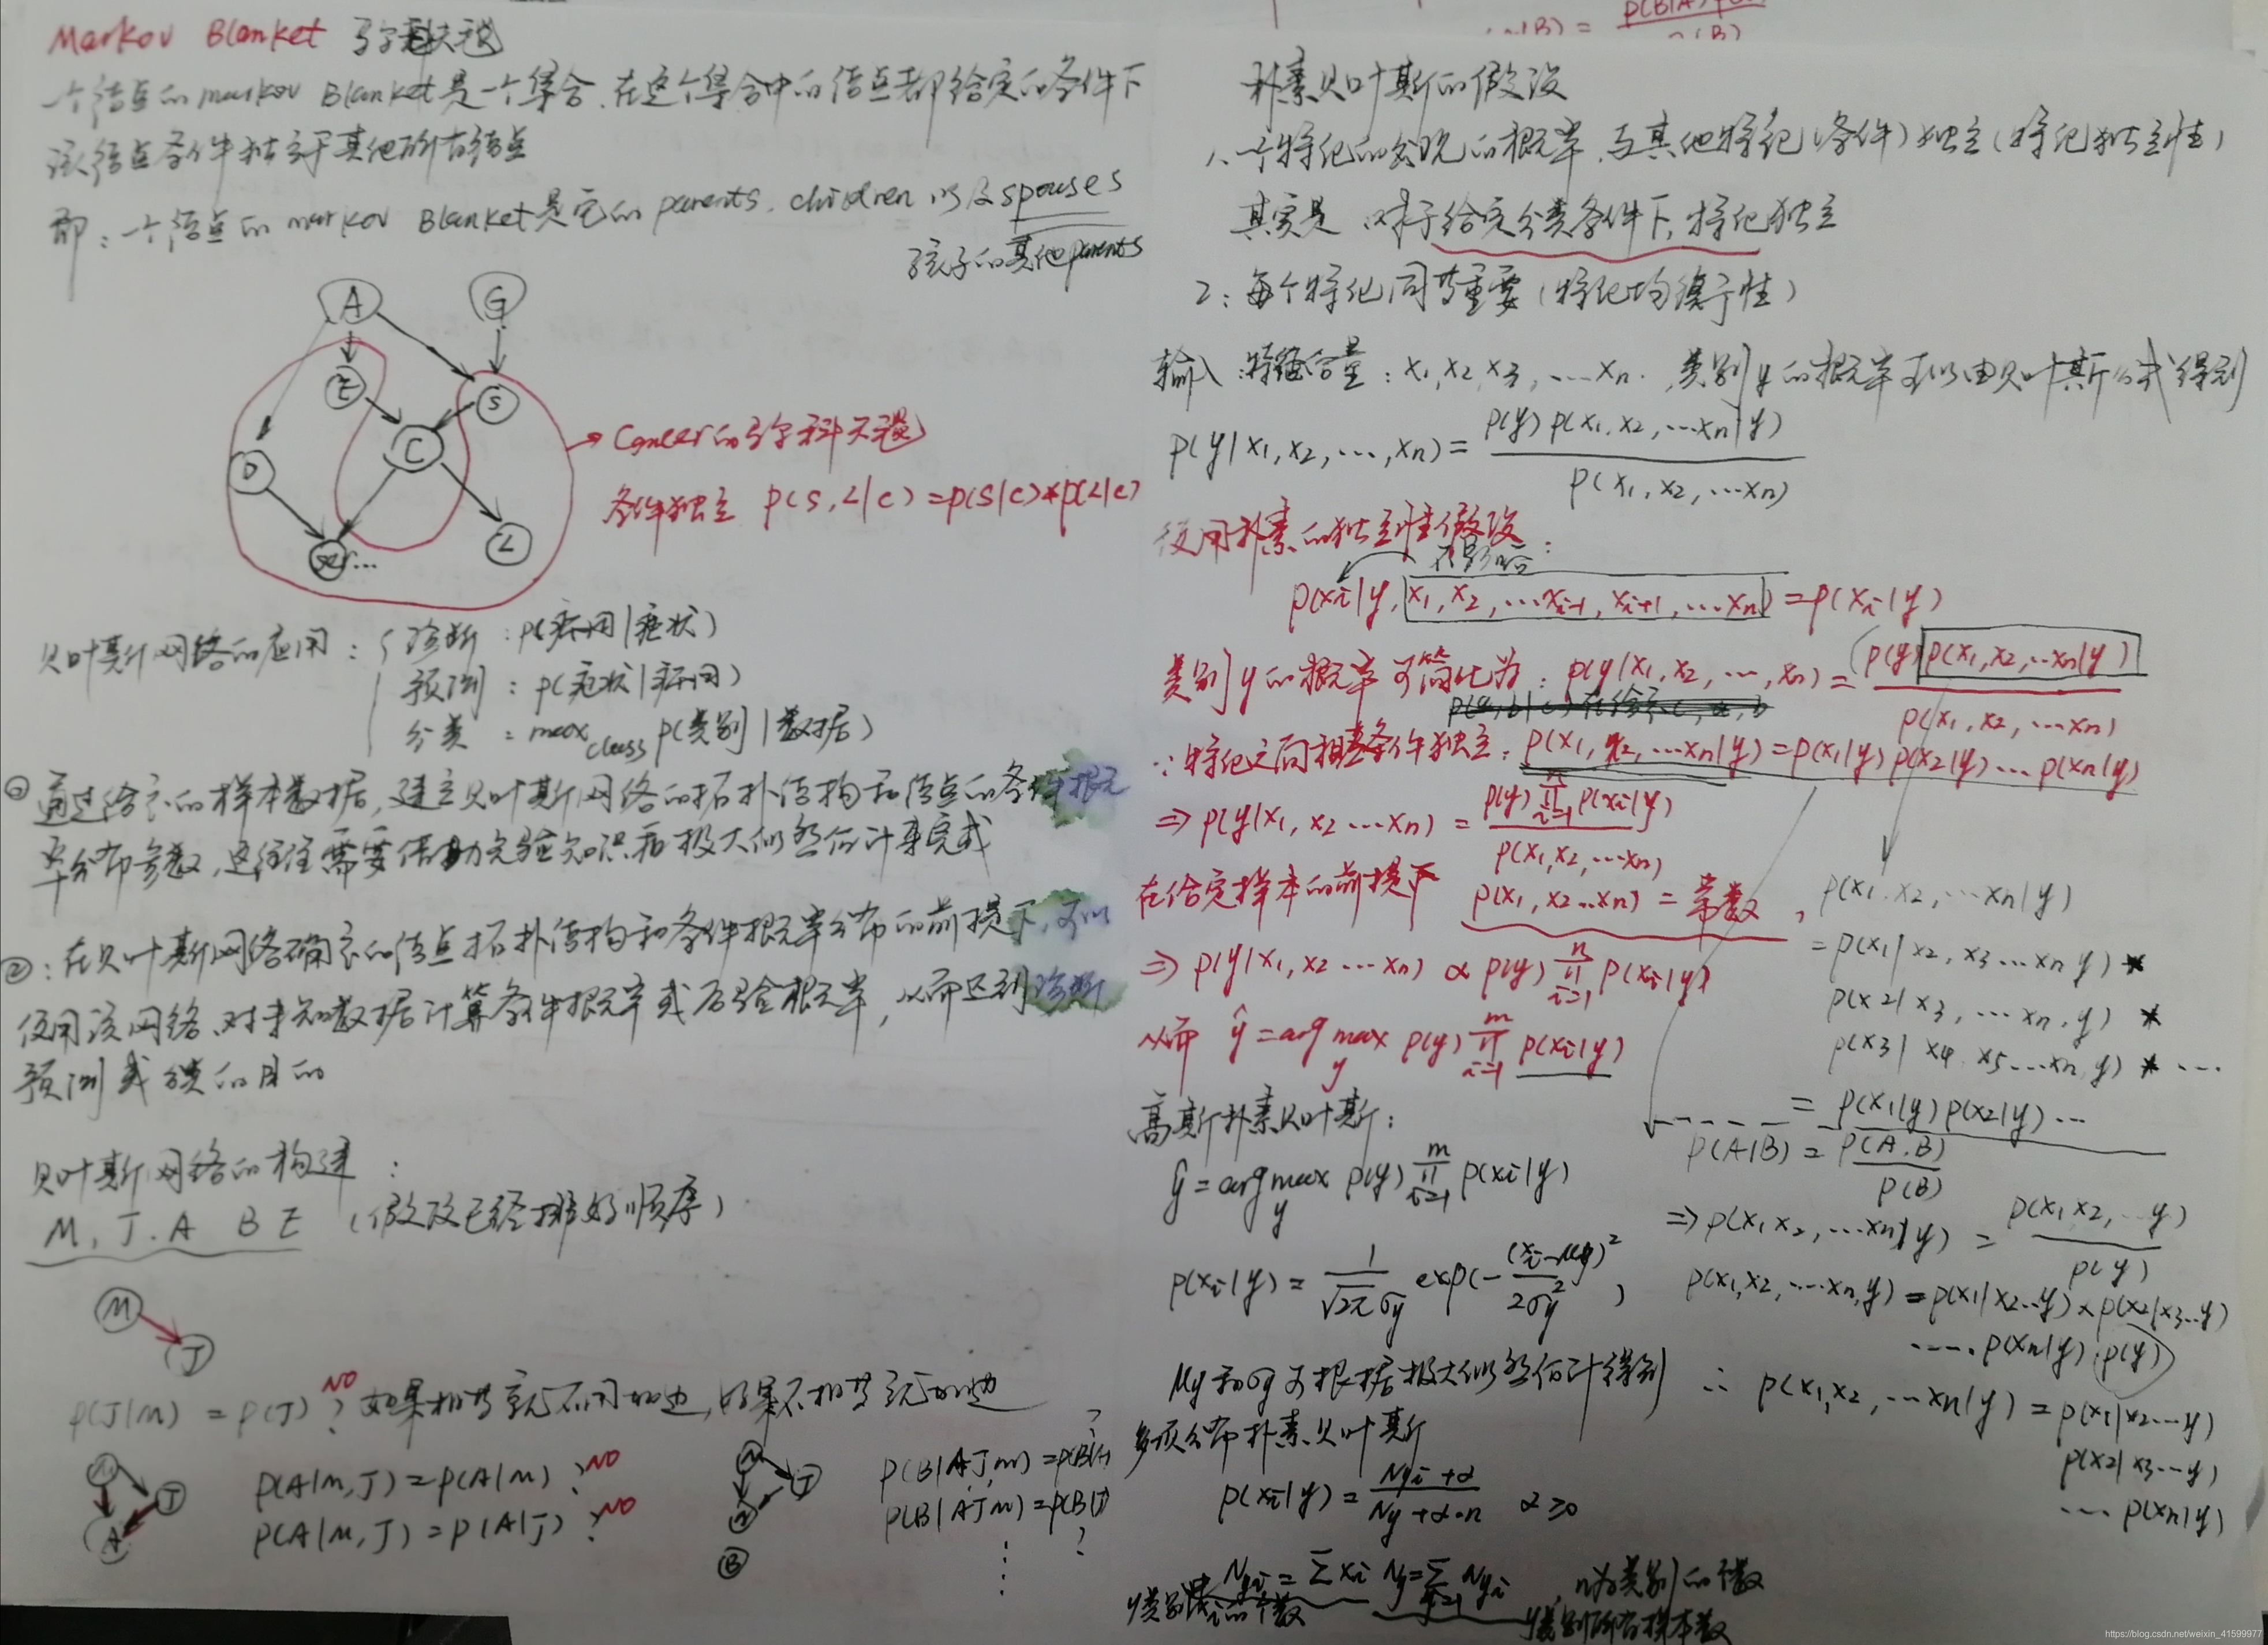 Markov Blanket 马尔科夫毯
一个结点的markov Blanket是一个集合,在这个集合中的结点都给定的条件下
该结点条件独立于其他所有结点
即:一个结点的markov Blanket是它的parents, children 以及spouses
孩子的其他parents
A G
E S
C
D
L
→ Cancer的马尔科夫毯
条件独立 P(S,L|C)=P(S|C)*P(L|C)
贝叶斯网络的应用: { 诊断:P(病因|症状)
预测:P(症状|病因)
分类:max class P(类别|数据)
①通过给定的样本数据,建立贝叶斯网络的拓扑结构和结点的条件概
率分布参数,这往往需要借助先验知识和极大似然估计来完成
②:在贝叶斯网络确定的结点拓扑结构和条件概率分布的前提下,可以
使用该网络、对未知数据计算条件概率或后验概率,从而达到诊断
预测或分类的目的
贝叶斯网络的构建:
M, J, A B E (假设已经排好顺序)
M
J
P(J|M) = P(J)? NO 如果相等就不用加边,如果不相等就加边
M J A
P(A|M,J)=P(A|M)? NO
P(A|M,J)=P(A|J)? NO
M J A B
P(B|A,J,M)=P(B|A)?
P(B|A,J,M)=P(B|J)
?
P(B|A)P(A)
P(A|B) = P(B)
朴素贝叶斯的假设
1、一个特征的出现的概率,与其他特征(条件)独立(特征独立性)
其实是:对于给定分类条件下,特征独立
2:每个特征同等重要(特征均衡性)
输入:特征向量:x1, x2, x3, ...xn. 类别y的概率可以由贝叶斯公式得到
P(y|x1, x2, ..., xn) = P(y)P(x1, x2, ...xn|y) / P(x1, x2, ...xn)
使用朴素的独立性假设:
不影响
P(xi|y, x1, x2, ...xi-1, xi+1, ...xn) = P(xi|y)
类别y的概率可简化为:P(y|x1, x2, ..., xn) = P(y)P(x1, x2, ...xn|y) / P(x1, x2, ...xn)
∵特征之间相互条件独立:P(x1, x2, ...xn|y) = P(x1|y)P(x2|y)...P(xn|y)
⇒ P(y|x1, x2...xn) = P(y)∏i=1^n P(xi|y) / P(x1, x2, ...xn)
在给定样本的前提下 P(x1, x2...xn) = 常数,
⇒ P(y|x1, x2...xn) ∝ P(y)∏i=1^n P(xi|y)
从而 ŷ = arg max y P(y)∏i=1^m P(xi|y)
P(x1, x2, ...xn|y)
= P(x1|x2, x3...xn y) *
P(x2|x3, ...xn, y) *
P(x3|x4, x5...xn, y) * ...
= P(x1|y)P(x2|y)...
高斯朴素贝叶斯:
ŷ = arg max y P(y)∏i=1^m P(xi|y)
P(xi|y) = 1/(√2π σy) exp(-(xi-μy)²/2σy²)
μy和σy可根据极大似然估计得到
P(A|B) = P(A,B) / P(B)
⇒ P(x1x2, ...xn|y) = P(x1x2, ...y) / P(y)
P(x1,x2, ...xn,y) = P(x1|x2...y) × P(x2|x3...y)
....P(xn|y)·P(y)
∴ P(x1,x2, ...xn|y) = P(x1|x2...y)
P(x2|x3...y)
... P(xn|y)
多项分布朴素贝叶斯
P(xi|y) = (Nyi+α) / (Ny+α·n) α≥0
Nyi = Σxi Ny = Σ Nyi, n为类别的个数
y类别所有样本数
https://blog.csdn.net/weixin_41599977